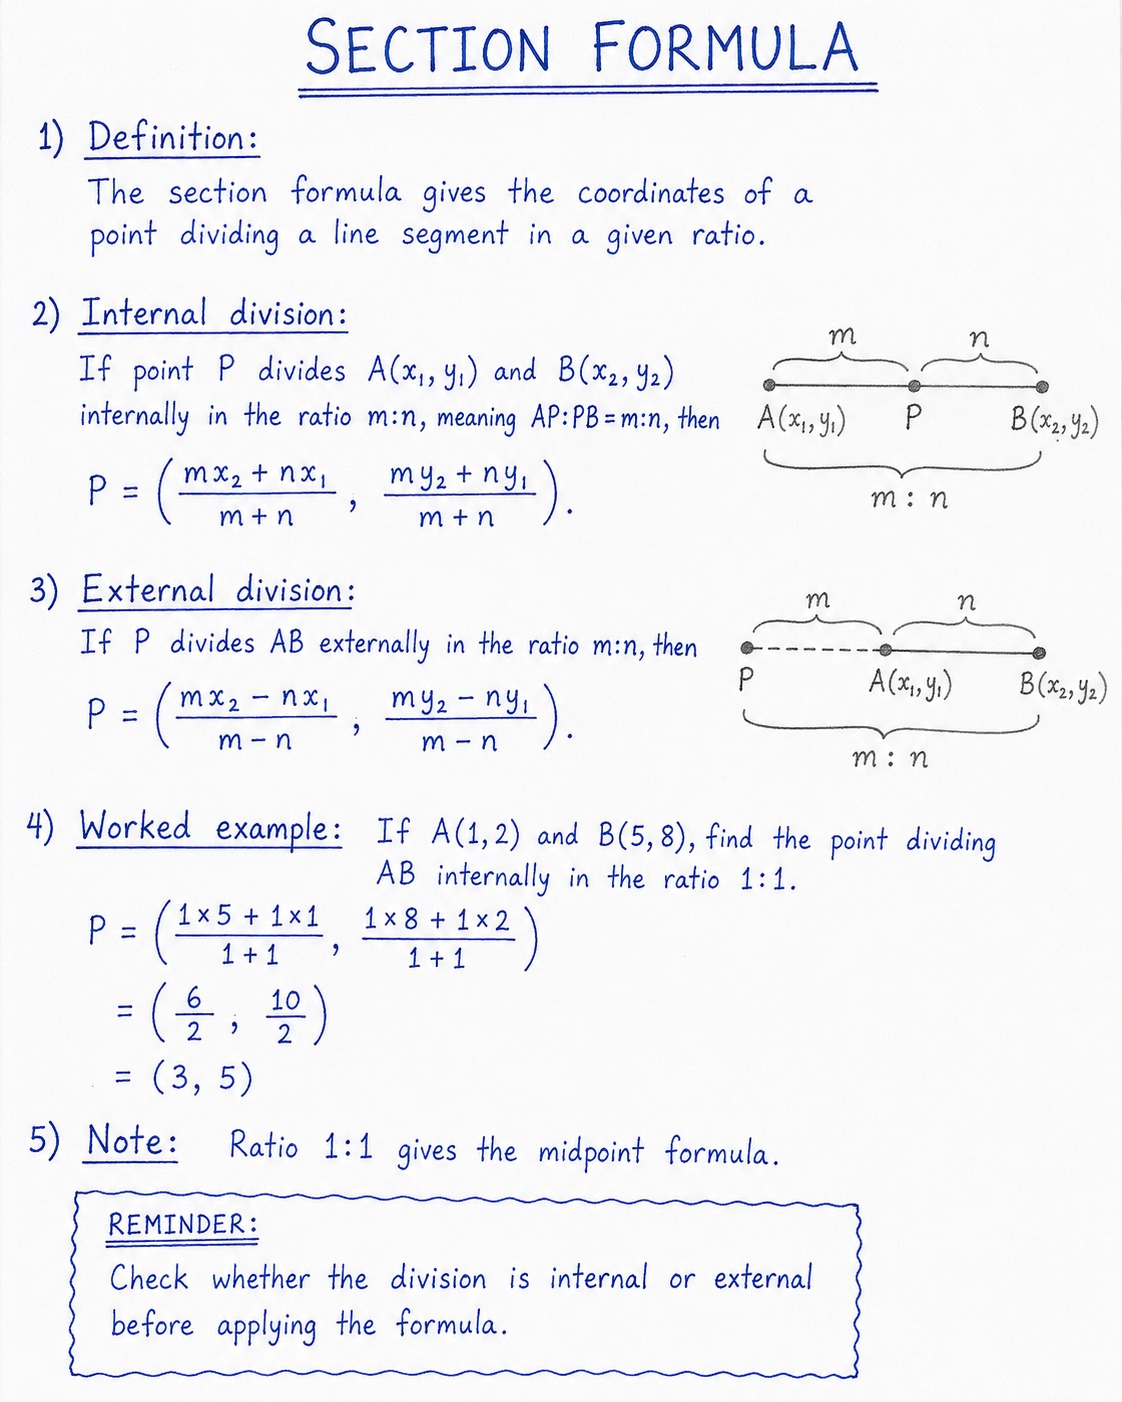 SECTION FORMULA
1) Definition:
The section formula gives the coordinates of a
point dividing a line segment in a given ratio.
2) Internal division:
If point P divides A(x₁, y₁) and B(x₂, y₂)
internally in the ratio m:n, meaning AP:PB = m:n, then
P = ( (mx₂ + nx₁)/(m + n) , (my₂ + ny₁)/(m + n) ).
m n
A(x₁, y₁) P B(x₂, y₂)
m : n
3) External division:
If P divides AB externally in the ratio m:n, then
P = ( (mx₂ − nx₁)/(m − n) , (my₂ − ny₁)/(m − n) ).
m n
P A(x₁, y₁) B(x₂, y₂)
m : n
4) Worked example: If A(1, 2) and B(5, 8), find the point dividing
AB internally in the ratio 1:1.
P = ( (1×5 + 1×1)/(1 + 1) , (1×8 + 1×2)/(1 + 1) )
= ( 6/2 , 10/2 )
= (3, 5)
5) Note: Ratio 1:1 gives the midpoint formula.
REMINDER:
Check whether the division is internal or external
before applying the formula.